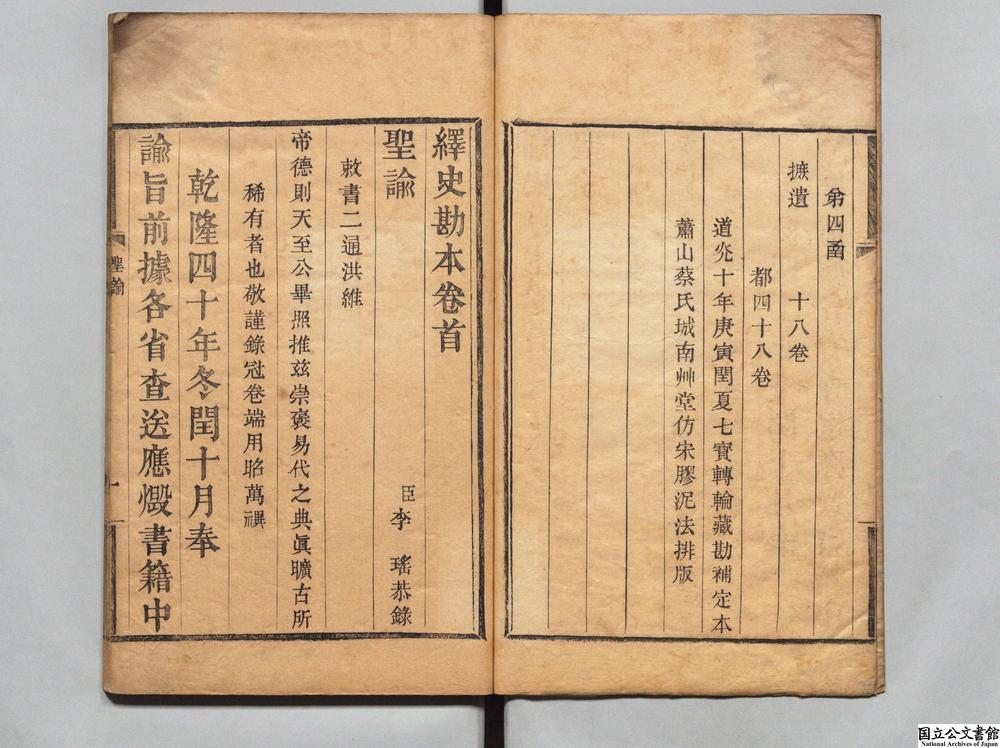 第四函
摭遺
十八卷
都四十八卷
道光十年庚寅閏夏七寶轉輪藏勘補定本
蕭山蔡氏城南艸堂仿宋膠泥法排版
繹史勘本卷首
聖諭
臣李瑤恭錄
敕書二通洪維
帝德則天至公畢照推兹崇褒易代之典眞曠古所
稀有者也敬謹錄冠卷端用昭萬禩
乾隆四十年冬閏十月奉
諭旨前據各省查送應燬書籍中
聖諭
一
国立公文書館
National Archives of Japan